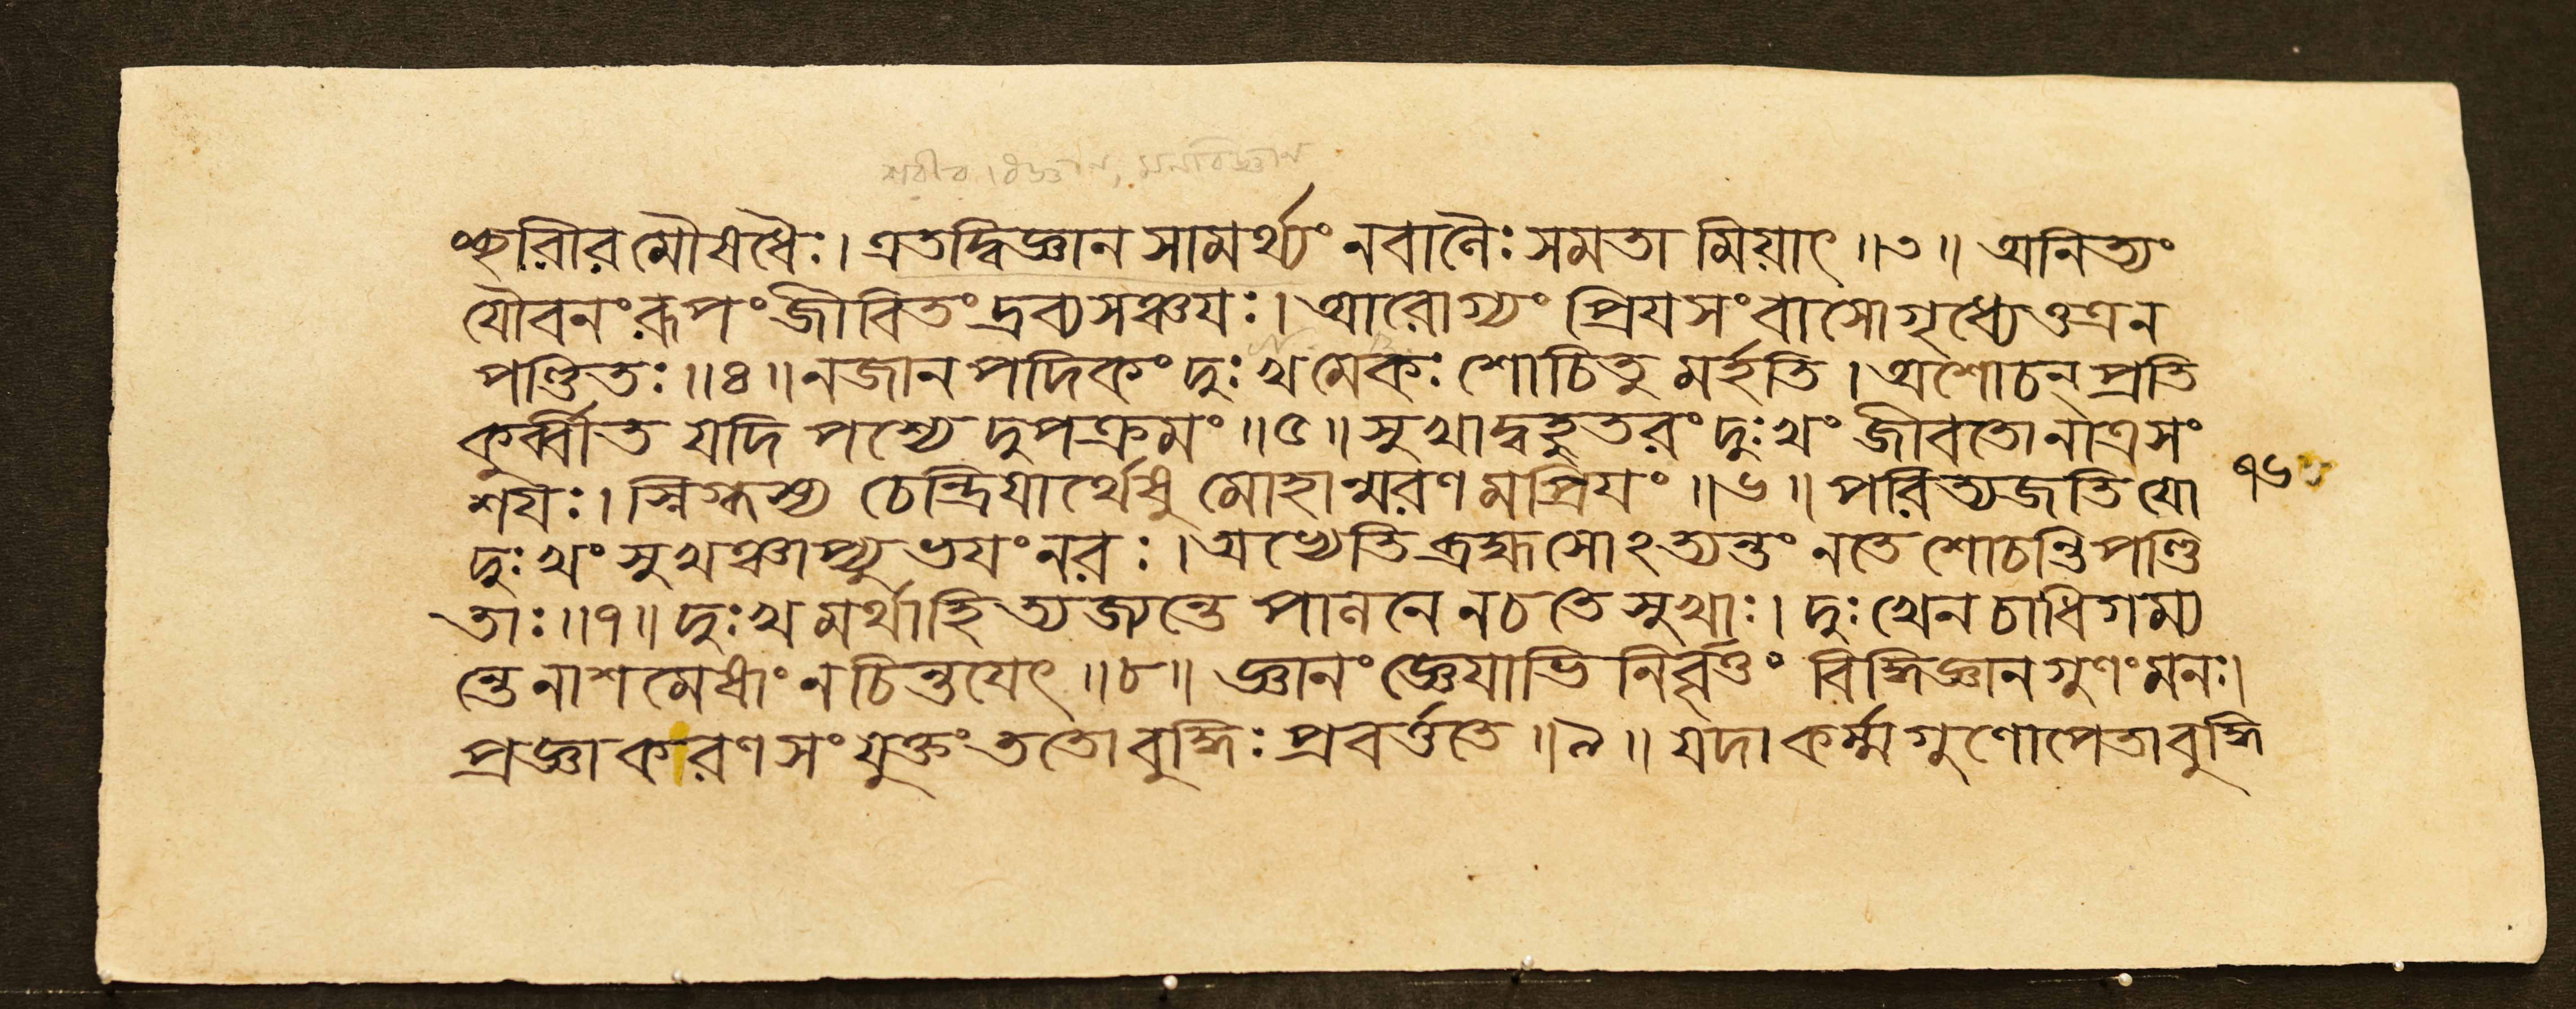 শরীর বিজ্ঞান, মনবিজ্ঞান
ঞ্ছরীরমৌষধৈঃ। এতদ্বিজ্ঞান সামর্থ্যং নবালৈঃ সমতা মিয়াৎ॥৩॥ অনিত্যং
যৌবনং রূপং জীবিতং দ্রব্যসঞ্চযঃ। আরোগ্যং প্রিযসংবাসো গৃধ্যেত্তত্রন
পণ্ডিতঃ॥৪॥ নজানপদিকং দুঃখমেকঃ শোচিতু মর্হতি। অশোচন্ প্রতি
কুর্ব্বীত যদি পশ্যে দুপক্রমং॥৫॥ সুখাদ্বহুতরং দুঃখং জীবতোনাত্রসং
শযঃ। স্নিগ্ধস্য চেন্দ্রিযার্থেষু মোহান্মরণমপ্রিযং॥৬॥ পরিত্যজতি যো
৭৬
দুঃখং সুখঞ্চাপ্যুভযং নরঃ। অভ্যেতি ব্রহ্মসোঽত্যন্তং নতে শোচন্তি পণ্ডি
তাঃ॥৭॥ দুঃখমর্থাহি ত্যজ্যন্তে পালনে নচতে সুখাঃ। দুঃখেন চাধিগম্য
ন্তে নাশমেষাং নচিন্তযেৎ॥৮॥ জ্ঞানং জ্ঞেযাভি নির্বৃত্তং বিদ্ধিজ্ঞানগুণং মনঃ।
প্রজ্ঞাকরণসংযুক্তং ততো বুদ্ধিঃ প্রবর্ত্ততে॥৯॥ যদা কর্ম্মগুণোপেতা বুদ্ধি